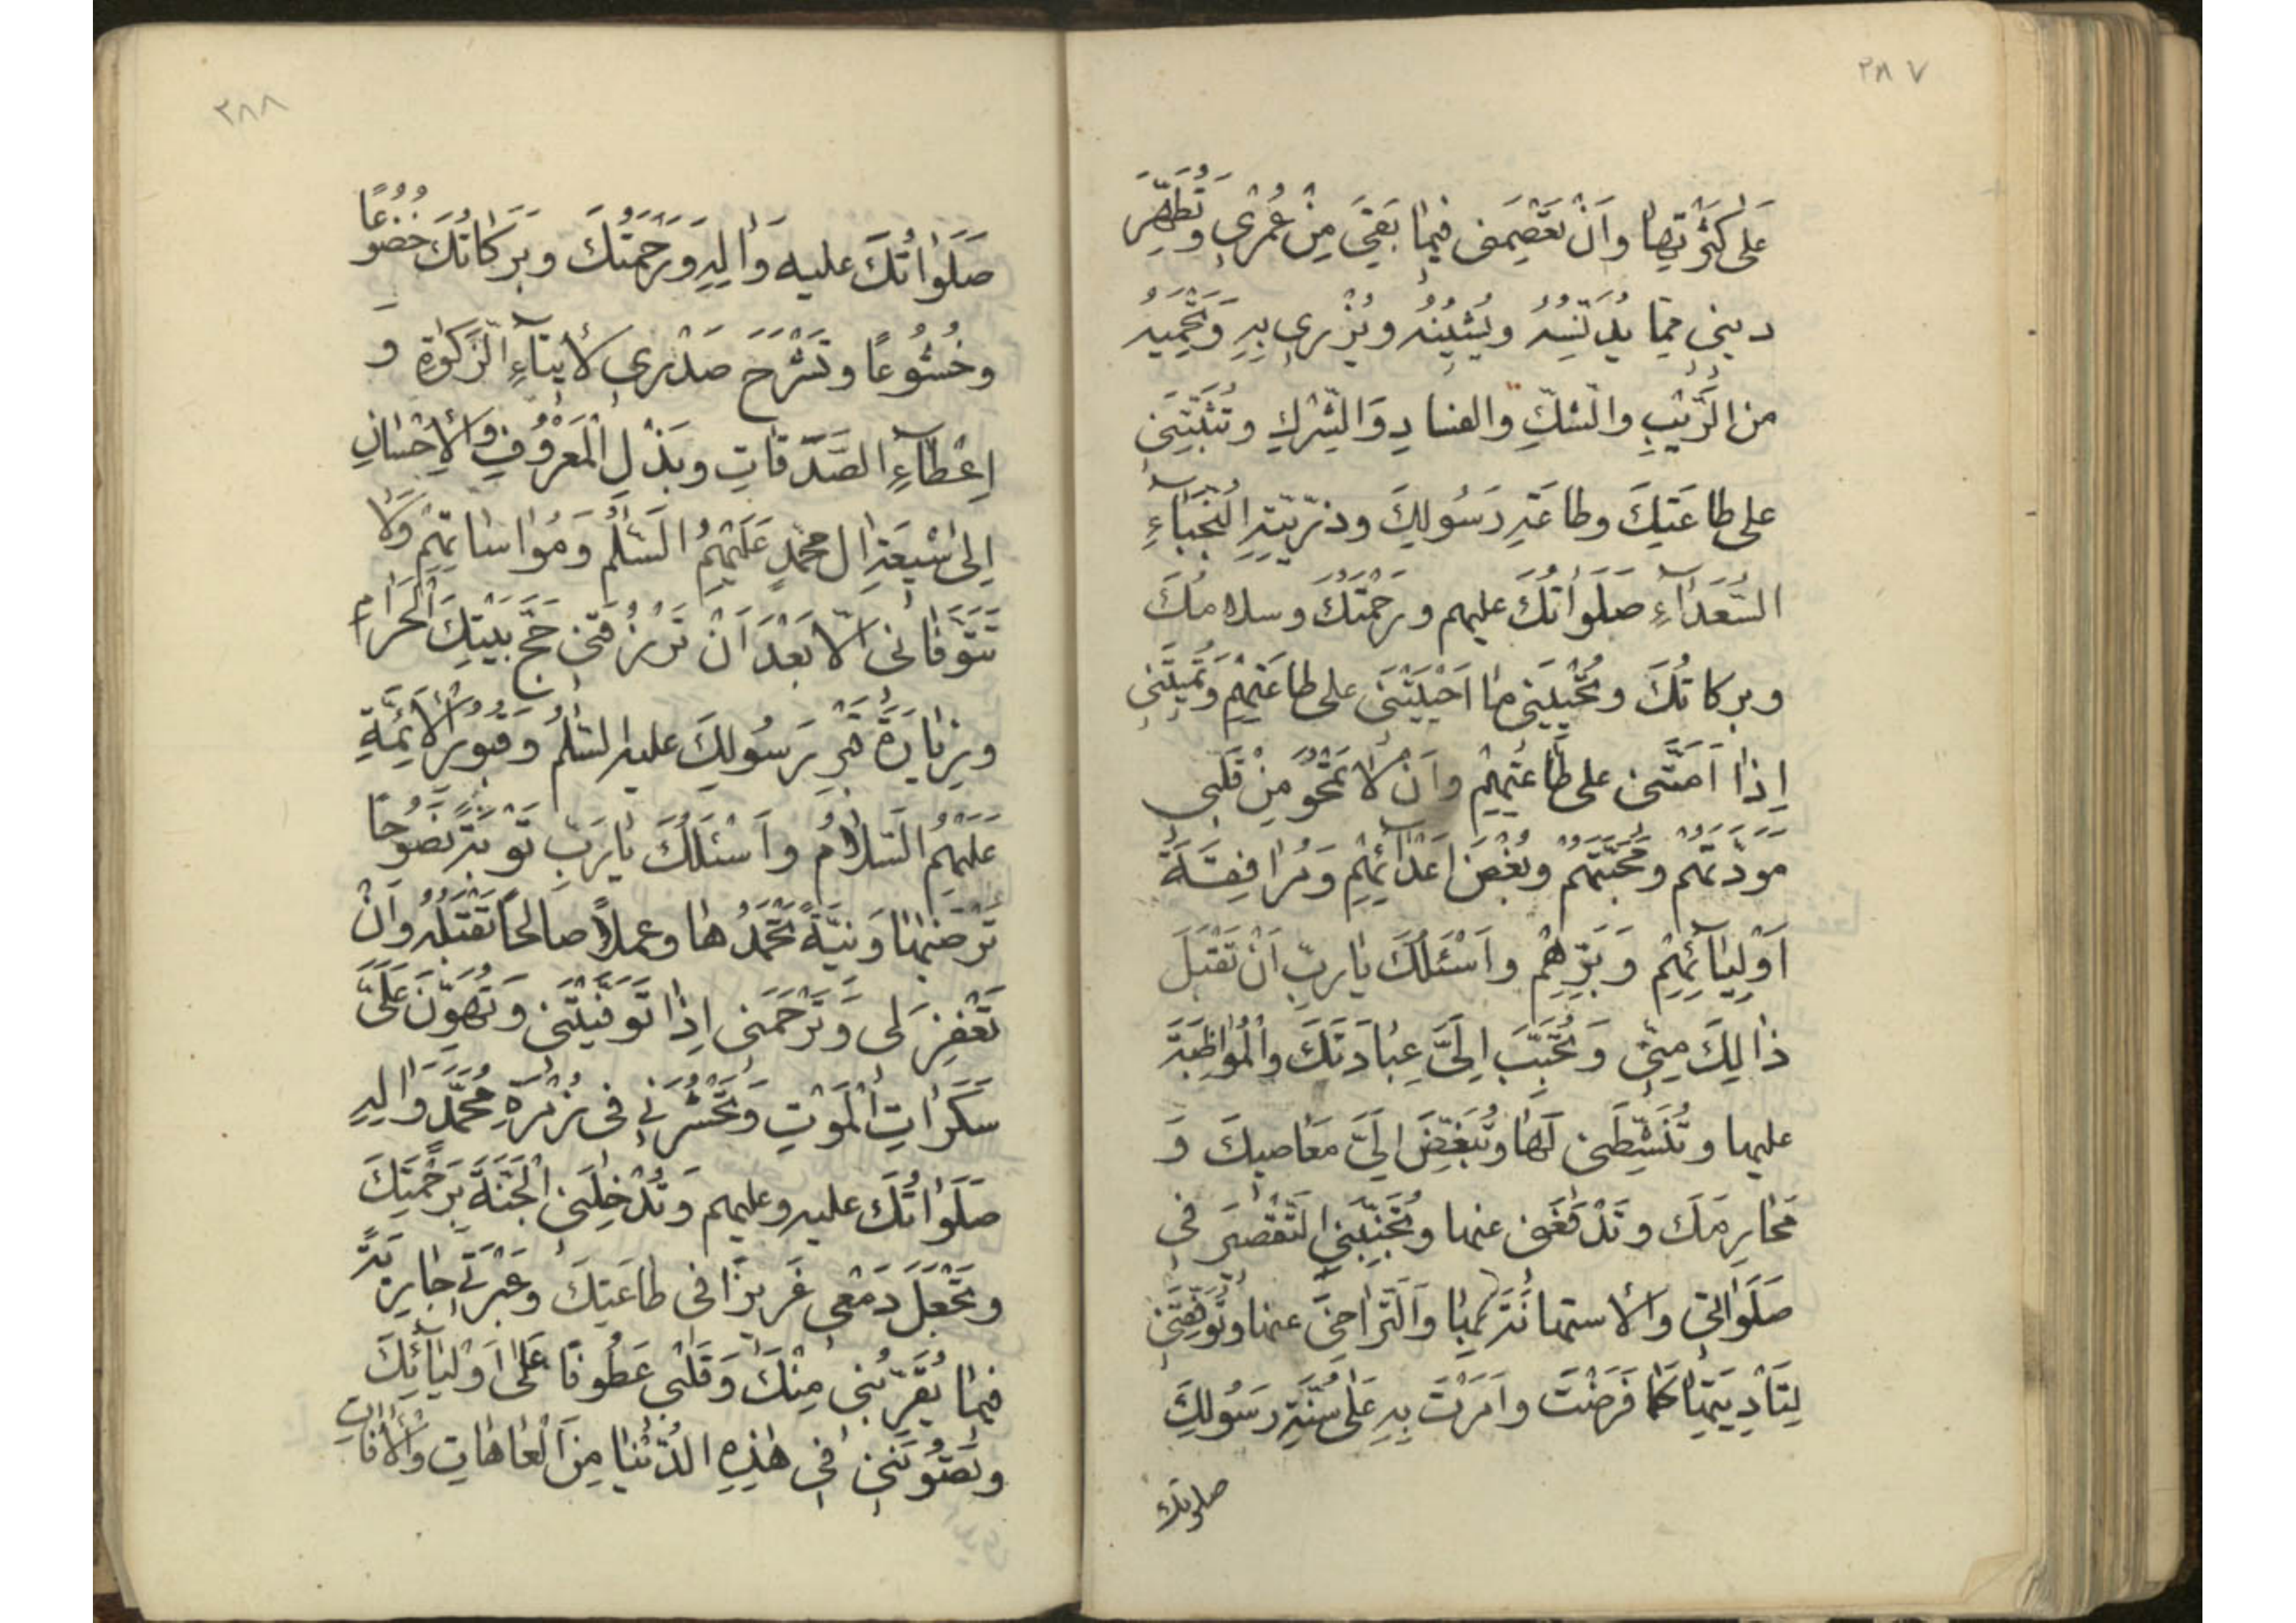 ٢٨٧
عَلىٰ كَثْرَتِهٰا وَاَنْ تَعْصِمَنى فيمٰا بَقِىَ مِنْ عُمْرى وَتُطَهِّرَ
دينى مِمّا يُدَنِّسُهُ وَيُشينُهُ وَيُزْرى بِهِ وَتَحْمِيَهُ
مِنَ الرَّيْبِ وَالشَّكِّ وَالفَسادِ وَالشِّرْكِ وَتُثَبِّتَنى
على طاعَتِكَ وطاعَةِ رَسُولِكَ وذُرِّيَّتِهِ النُّجَبآءِ
السُّعَدآءِ صَلَوٰاتُكَ عليهم ورَحْمَتُكَ وسلامُكَ
وبركاتُكَ وتُحْيِيَنى مٰا اَحْيَيْتَنى على طاعَتِهِمْ وَتُميتَنى
اِذٰا اَمَتَّنى على طاعَتِهِمْ واَنْ لاٰ تَمْحُوَ مِنْ قَلْبى
مَوَدَّتَهُم ومَحَبَّتَهُمْ وبُغْضَ اَعْدآئِهِمْ وَمُرافِقَةَ
اَوْلِيٰآئِهِمْ وَبِرِّهِمْ واَسْئَلُكَ يٰا ربِّ اَنْ تَقْبَلَ
ذٰالِكَ مِنّى وَتُحَبِّبَ اِلَىَّ عِبٰادَتَكَ والْمُواظَبَةَ
عليها وتُنَشِّطَنى لَهٰا وتُبَغِّضَ اِلَىَّ مَعٰاصيكَ وَ
مَحٰارِمَكَ وتَدْفَعَنى عنها وتُجَنِّبَنى التَّقْصيرَ فى
صَلَوٰاتى والاستهانَةَ بِهٰا وَالتَّراخِىَ عنها وتُوَفِّقَنى
لِتَأدِيَتِهٰا كَمٰا فَرَضْتَ واَمَرْتَ بِهِ عَلىٰ سُنَّةِ رَسُولِكَ
صلوتك
٢٨٨
صَلَوٰاتُكَ عليه وَاٰلِهِ وَرَحْمَتُكَ وبَرَكٰاتُكَ خُضُوعًا
وخُشُوعًا وتَشْرَحَ صَدْرى لاٖيتآءِ الزَّكوٰةِ وَ
اِعْطآءِ الصَّدَقٰاتِ وبَذْلِ الْمَعْرُوفِ وَالْاِحْسٰانِ
اِلىٰ شيعَةِ اٰلِ مُحَمَّدٍ عَلَيْهِمُ السَّلٰمُ وَمُوٰاسٰاتِهِمْ وَلاٰ
تَتَوَفّٰانى اِلاّ بَعْدَ اَنْ تَرْزُقَنى حَجَّ بَيْتِكَ الْحَرٰامِ
وزِيٰارَةَ قَبْرِ رَسُولِكَ عليه السَّلٰمُ وَقُبُورِ الْاَئِمَّةِ
عَلَيْهِمُ السَّلاٰمُ واَسْئَلُكَ يٰا رَبِّ تَوْبَةً نَصُوحًا
تَرْضٰيهٰا وَنِيَّةً تَحْمَدُهٰا وعملاً صالحًا تَقْبَلُهُ وَاَنْ
تَغْفِرَ لى وَتَرْحَمَنى اِذٰا تَوَفَّيْتَنى وَتُهَوِّنَ عَلَىَّ
سَكَرٰاتِ الْمَوْتِ وَتَحْشُرَنى فى زُمْرَةِ مُحَمَّدٍ وَاٰلِهِ
صَلَوٰاتُكَ عليه وعليهم وَتُدْخِلَنى الْجَنَّةَ بِرَحْمَتِكَ
وتَجْعَلَ دَمْعى غَزيرًا فى طاعَتِكَ وَعَبْرَتى جٰارِيَةً
فيمٰا يُقَرِّبُنى مِنْكَ وَقَلْبى عَطُوفًا عَلىٰ اَوْلِيٰآئِكَ
وتَصُونَنى فى هٰذِهِ الدُّنْيٰا مِنَ الْعٰاهٰاتِ وَالْاٰفٰاتِ